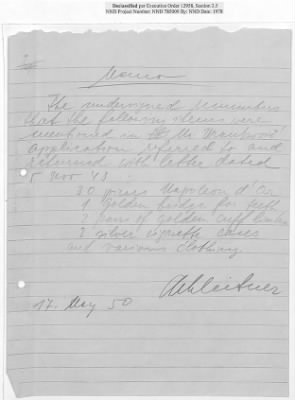 Declassified per Executive Order 12958, Section 3.5
NND Project Number: NND 785009 By: NND Date: 1978
Memo
The undersigned remembers
that the following items were
mentioned in Mr
application referred to and
returned with letter dated
5 Nov 43
30 pieces Napoleon d'Or
1 golden bridge for teeth
2 pairs of golden cuff links
2 silver cigarette cases
and various clothing
17. May 50